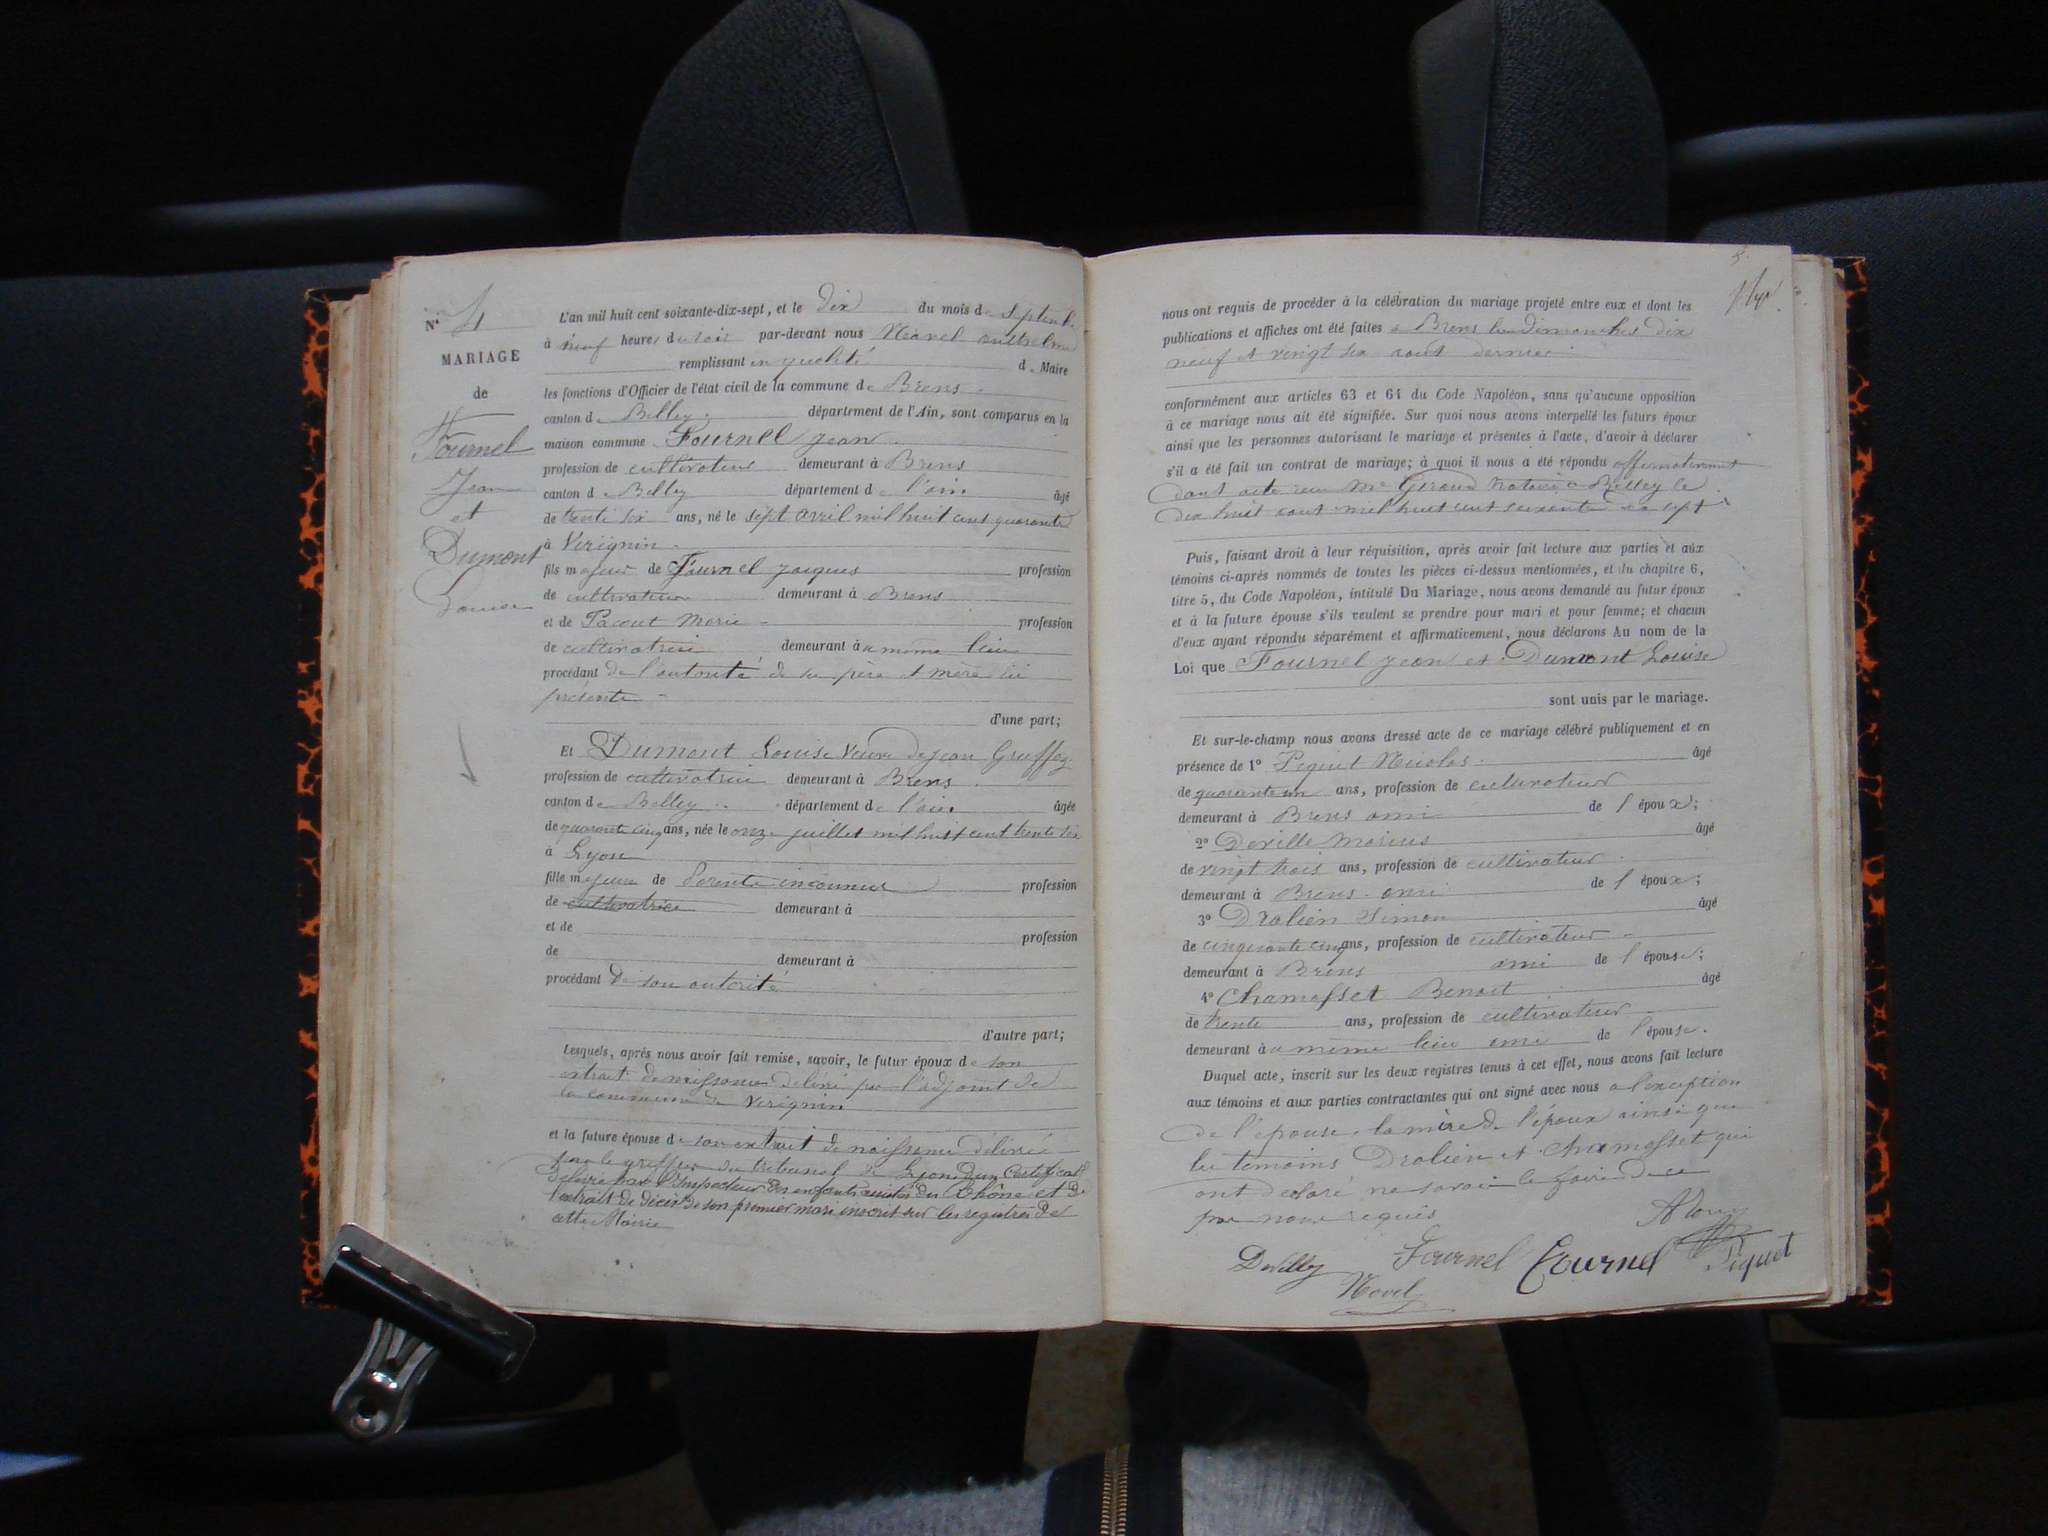 N° 4
MARIAGE
de
Fournel
Jean
et
Dumont
Louise
L'an mil huit cent soixante-dix-sept, et le dix du mois de septembre
à neuf heures du soir par-devant nous
remplissant en qualité de Maire
les fonctions d'Officier de l'état civil de la commune de Brens
canton de Belley département de l'Ain, sont comparus en la
maison commune Fournel Jean
profession de cultivateur demeurant à Brens
canton de Belley département de l'ain âgé
de trente six ans, né le sept avril mil huit cent quarante
à Virignin
fils majeur de Fournel Jacques profession
de cultivateur demeurant à Brens
et de Pacout Marie profession
de cultivatrice demeurant au même lieu
procédant de l'autorité de ses père et mère ici
présents
d'une part;
Et Dumont Louise Veuve de Jean Gruffaz
profession de cultivatrice demeurant à Brens
canton de Belley département de l'ain âgée
de quarante cinq ans, née le onze juillet mil huit cent trente
à Lyon
fille majeure de Parents inconnus profession
de cultivatrice demeurant à
et de profession
de demeurant à
procédant de son autorité
d'autre part;
Lesquels, après nous avoir fait remise, savoir, le futur époux de son
extrait de naissance délivré par l'adjoint de
la commune de Virignin
et la future épouse de son extrait de naissance délivré
par le greffier du tribunal de Lyon d'un Certificat
délivré par l'Inspecteur des enfants assistés du Rhône et de
l'extrait de décès de son premier mari inscrit sur les registres de
cette Mairie
5
nous ont requis de procéder à la célébration du mariage projeté entre eux et dont les
publications et affiches ont été faites à Brens les dimanches dix
neuf et vingt six aout dernier
conformément aux articles 63 et 64 du Code Napoléon, sans qu'aucune opposition
à ce mariage nous ait été signifiée. Sur quoi nous avons interpellé les futurs époux
ainsi que les personnes autorisant le mariage et présentes à l'acte, d'avoir à déclarer
s'il a été fait un contrat de mariage; à quoi il nous a été répondu affirmativement
dont acte reçu Me Giraud Notaire à Belley le
dix huit aout mil huit cent soixante dix sept
Puis, faisant droit à leur réquisition, après avoir fait lecture aux parties et aux
témoins ci-après nommés de toutes les pièces ci-dessus mentionnées, et du chapitre 6,
titre 5, du Code Napoléon, intitulé Du Mariage, nous avons demandé au futur époux
et à la future épouse s'ils veulent se prendre pour mari et pour femme; et chacun
d'eux ayant répondu séparément et affirmativement, nous déclarons Au nom de la
Loi que Fournel Jean et Dumont Louise
sont unis par le mariage.
Et sur-le-champ nous avons dressé acte de ce mariage célébré publiquement et en
présence de 1° Piquet Nicolas âgé
de quarante un ans, profession de cultivateur
demeurant à Brens ami de l'époux;
2° Deville Marius âgé
de vingt trois ans, profession de cultivateur
demeurant à Brens ami de l'époux;
3° Dralien Simon âgé
de cinquante cinq ans, profession de cultivateur
demeurant à Brens ami de l'épouse;
4° Chamosset Benoit âgé
de trente ans, profession de cultivateur
demeurant au même lieu ami de l'épouse.
Duquel acte, inscrit sur les deux registres tenus à cet effet, nous avons fait lecture
aux témoins et aux parties contractantes qui ont signé avec nous a l'exception
de l'épouse, la mère de l'époux ainsi que
les temoins Dralien et Chamosset qui
ont déclaré ne savoir le faire de ce
par nous requis
Fournel Fournel Piquet